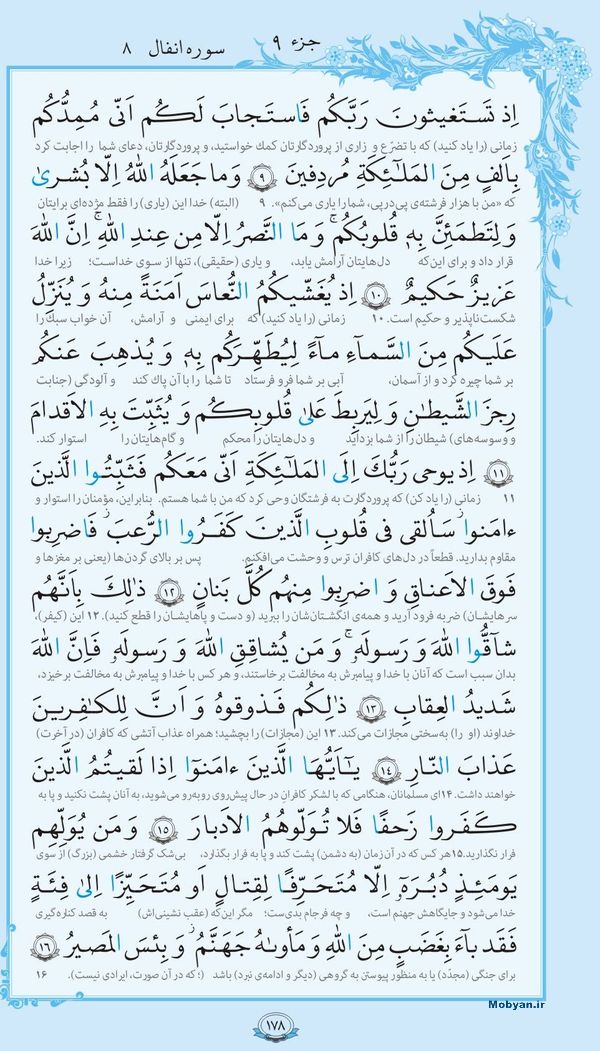 جزء ۹
سوره انفال ۸
اِذ تَستَغیثونَ رَبَّکُم فَاستَجابَ لَکُم اَنّی مُمِدُّکُم
زمانی (را یاد کنید) که با تضرّع و زاری از پروردگارتان کمک خواستید، و پروردگارتان، دعای شما را اجابت کرد
بِاَلفٍ مِنَ المَلـٰئِکَةِ مُردِفینَ ۹ وَ ما جَعَلَهُ اللهُ اِلّا بُشریٰ
که «من با هزار فرشته‌ی پی‌درپی، شما را یاری می‌کنم». ۹ (البته) خدا این (یاری) را فقط مژده‌ای برایتان
وَ لِتَطمَئِنَّ بِهٖ قُلوبُکُم ۚ وَ مَا النَّصرُ اِلّا مِن عِندِ اللهِ ۚ اِنَّ اللهَ
قرار داد و برای این‌که دل‌هایتان آرامش یابد، و یاری (حقیقی)، تنها از سوی خداست؛ زیرا خدا
عَزیزٌ حَکیمٌ ۱۰ اِذ یُغَشّیکُمُ النُّعاسَ اَمَنَةً مِنهُ وَ یُنَزِّلُ
شکست‌ناپذیر و حکیم است. ۱۰ زمانی (را یاد کنید) که برای ایمنی و آرامش، آن خواب سبک را
عَلَیکُم مِنَ السَّماءِ ماءً لِیُطَهِّرَکُم بِهٖ وَ یُذهِبَ عَنکُم
بر شما چیره کرد و از آسمان، آبی بر شما فرو فرستاد تا شما را با آن پاک کند و آلودگی (جنابت
رِجزَ الشَّیطـٰنِ وَ لِیَربِطَ عَلیٰ قُلوبِکُم وَ یُثَبِّتَ بِهِ الاَقدامَ
و وسوسه‌های) شیطان را از شما بزداید و دل‌هایتان را محکم و گام‌هایتان را استوار کند.
۱۱ اِذ یوحی رَبُّکَ اِلَی المَلـٰئِکَةِ اَنّی مَعَکُم فَثَبِّتُوا الَّذینَ
۱۱ زمانی (را یاد کن) که پروردگارت به فرشتگان وحی کرد که من با شما هستم. بنابراین، مؤمنان را استوار و
ءامَنوا ۚ سَاُلقی فی قُلوبِ الَّذینَ کَفَرُوا الرُّعبَ فَاضرِبوا
مقاوم بدارید. قطعاً در دل‌های کافران ترس و وحشت می‌افکنم. پس بر بالای گردن‌ها (یعنی بر مغزها و
فَوقَ الاَعناقِ وَ اضرِبوا مِنهُم کُلَّ بَنانٍ ۱۲ ذٰلِکَ بِاَنَّهُم
سرهایشان) ضربه فرود آرید و همه‌ی انگشت‌شان را ببرید (و دست و پاهایشان را قطع کنید). ۱۲ این (کیفر)،
شاقُّوا اللهَ وَ رَسولَهٗ ۚ وَ مَن یُشاقِقِ اللهَ وَ رَسولَهٗ فَاِنَّ اللهَ
بدان سبب است که آنان با خدا و پیامبرش به مخالفت برخاستند، و هر کس با خدا و پیامبرش به مخالفت برخیزد،
شَدیدُ العِقابِ ۱۳ ذٰلِکُم فَذوقوهُ وَ اَنَّ لِلکـٰفِرینَ
خداوند (او را) به‌سختی مجازات می‌کند. ۱۳ این (مجازات) را بچشید؛ همراه عذاب آتشی که کافران (در آخرت)
عَذابَ النّارِ ۱۴ یـٰاَیُّهَا الَّذینَ ءامَنوا اِذا لَقیتُمُ الَّذینَ
خواهند داشت. ۱۴ ای مسلمانان، هنگامی که با لشکر کافران در حال پیش‌روی روبه‌رو می‌شوید، به آنان پشت نکنید و پا به
کَفَروا زَحفًا فَلا تُوَلّوهُمُ الاَدبارَ ۱۵ وَ مَن یُوَلِّهِم
فرار نگذارید. ۱۵ هر کس که در آن زمان (به دشمن) پشت کند و پا به فرار بگذارد، بی‌شک گرفتار خشمی (بزرگ) از سوی
یَومَئِذٍ دُبُرَهٗ اِلّا مُتَحَرِّفًا لِقِتالٍ اَو مُتَحَیِّزًا اِلیٰ فِئَةٍ
خدا می‌شود و جایگاهش جهنم است، و چه فرجام بدی‌ست؛ مگر این‌که (عقب نشینی‌اش) به قصد کناره‌گیری
فَقَد باءَ بِغَضَبٍ مِنَ اللهِ وَ مَأواهُ جَهَنَّمُ ۖ وَ بِئسَ المَصیرُ ۱۶
برای جنگی (مجدّد) یا به منظور پیوستن به گروهی (دیگر و ادامه‌ی نبرد) باشد (؛ که در آن صورت، ایرادی نیست). ۱۶
Mobyan.ir
۱۷۸